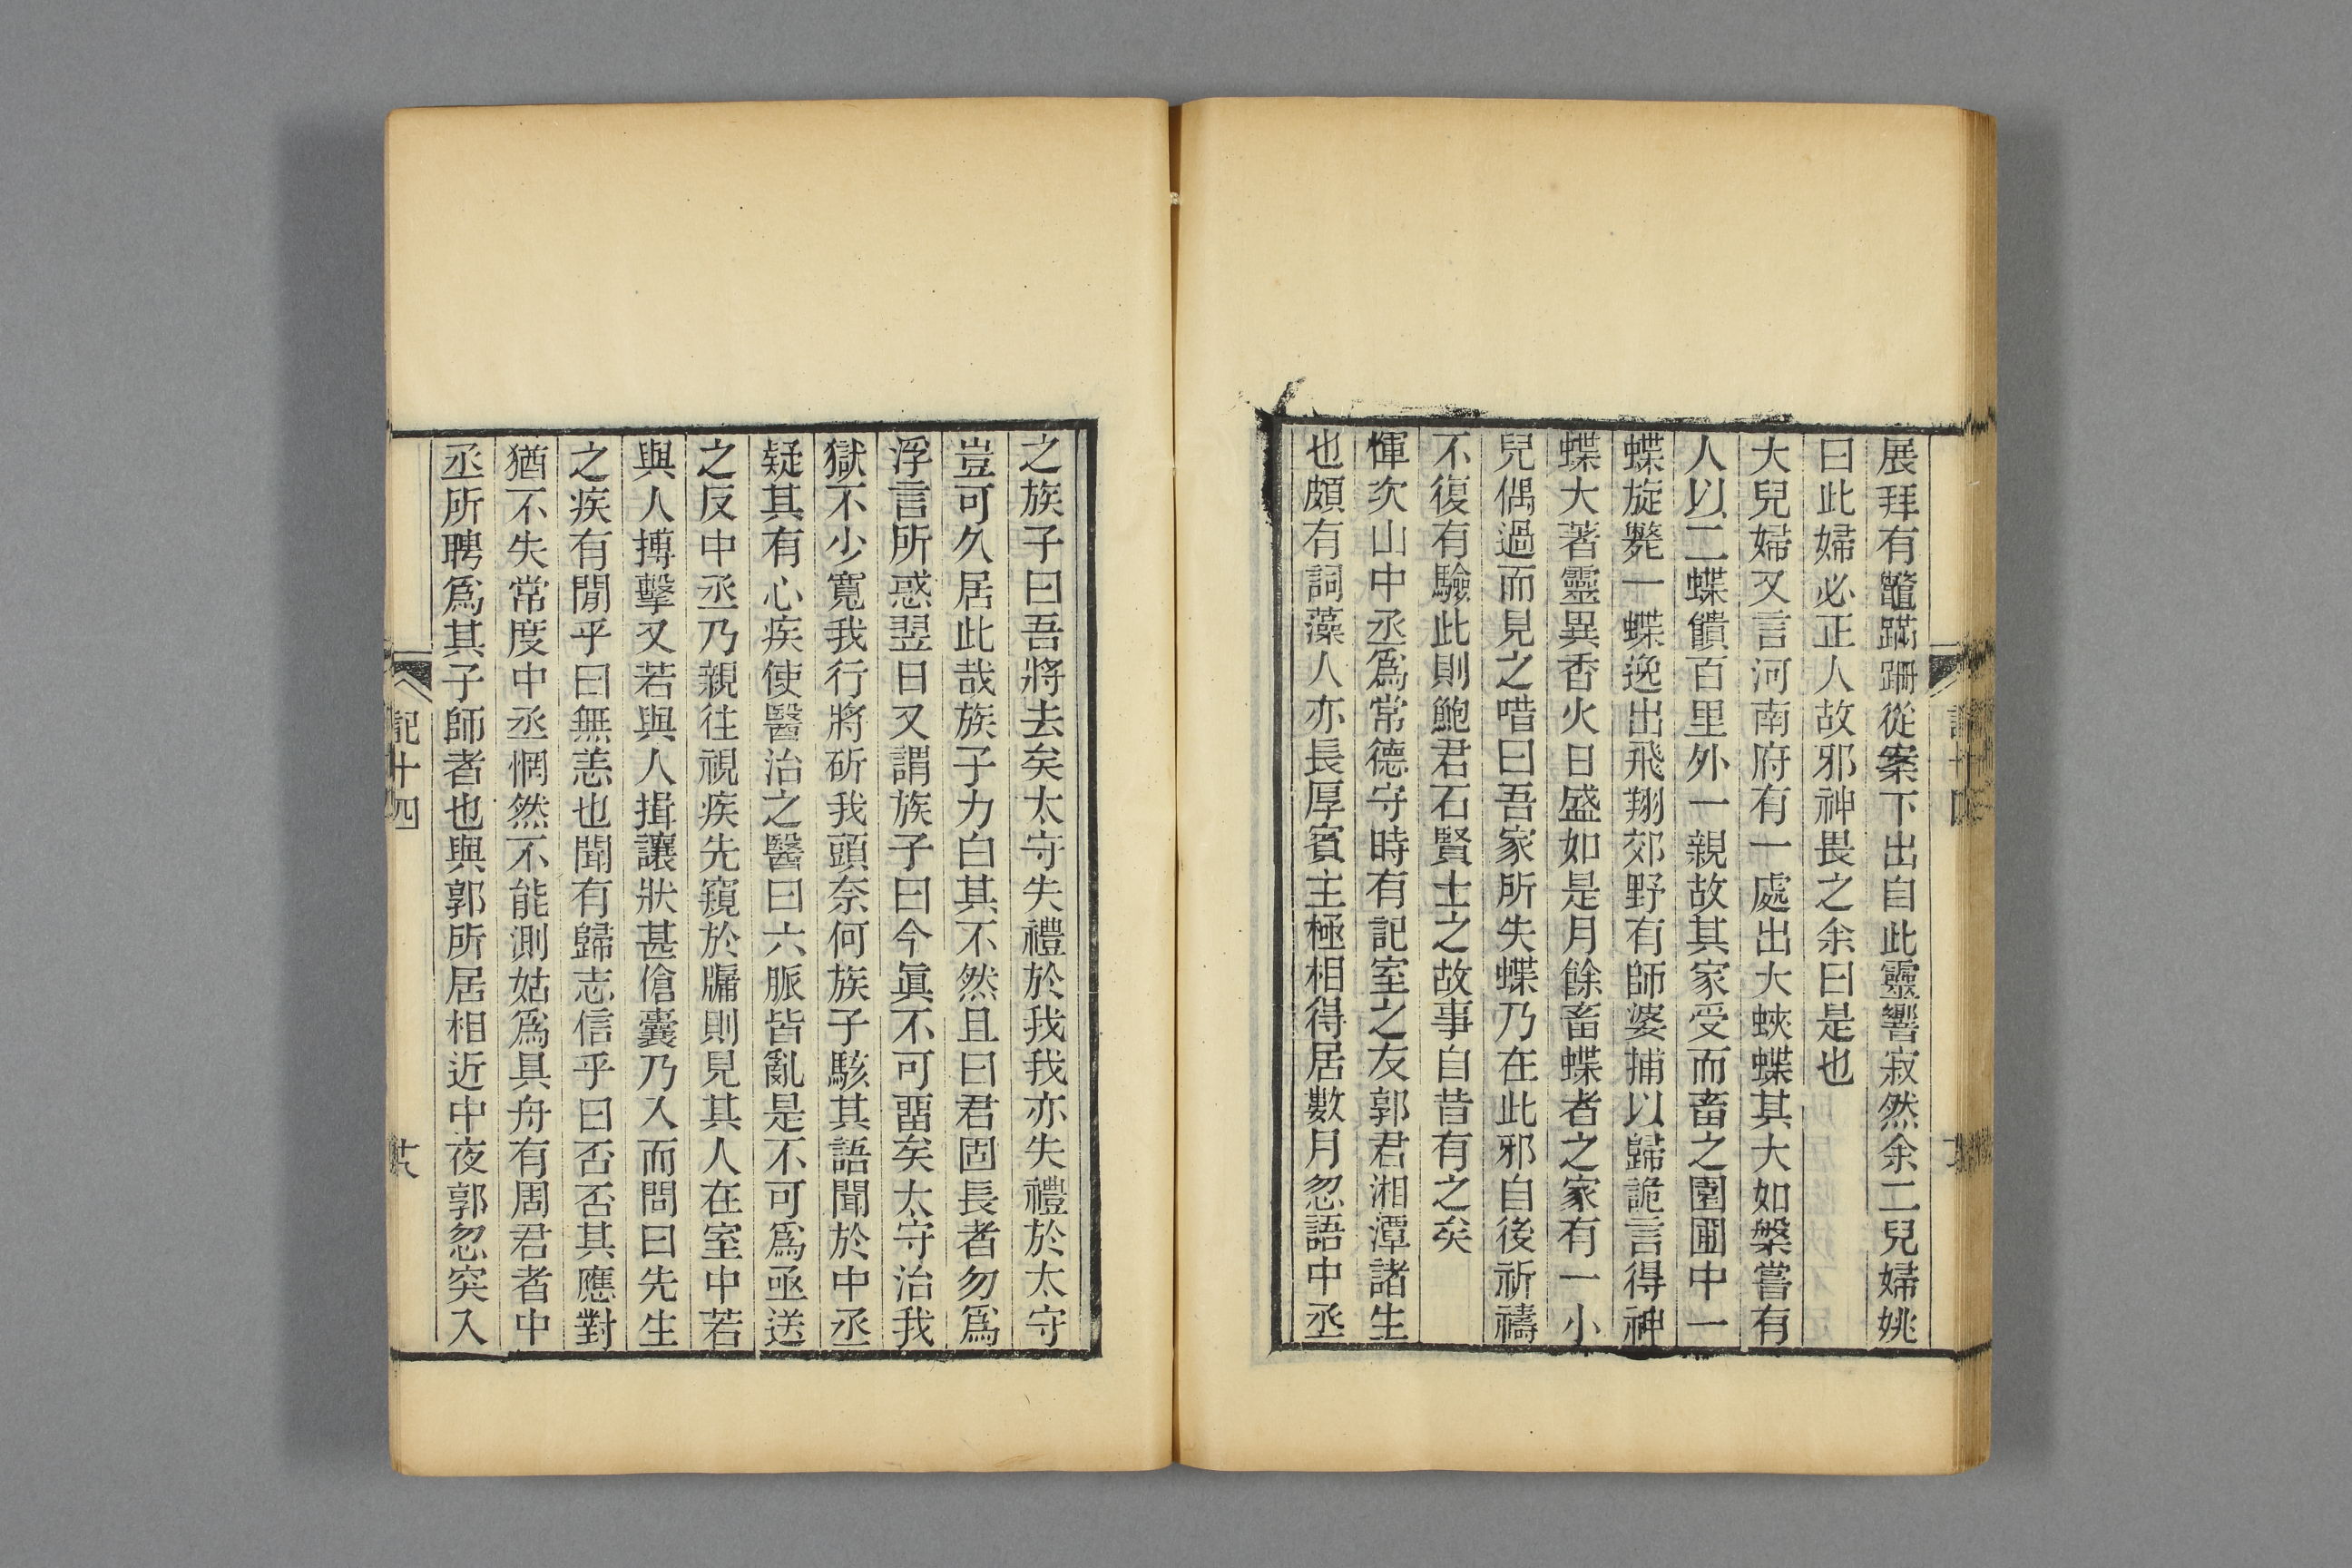 展拜有鼈蹣跚從案下出自此靈響寂然余二兒婦姚
曰此婦必正人故邪神畏之余曰是也
大兒婦又言河南府有一處出大蛺蝶其大如槃嘗有
人以二蝶饋百里外一親故其家受而畜之園圃中一
蝶旋斃一蝶逸出飛翔郊野有師婆捕以歸詭言得神
蝶大著靈異香火日盛如是月餘畜蝶者之家有一小
兒偶過而見之唶曰吾家所失蝶乃在此邪自後祈禱
不復有驗此則鮑君石賢士之故事自昔有之矣
惲次山中丞爲常德守時有記室之友郭君湘潭諸生
也頗有詞藻人亦長厚賓主極相得居數月忽語中丞
之族子曰吾將去矣太守失禮於我我亦失禮於太守
豈可久居此哉族子力白其不然且曰君固長者勿爲
浮言所惑翌日又謂族子曰今眞不可畱矣太守治我
獄不少寬我行將斫我頭奈何族子駭其語聞於中丞
疑其有心疾使醫治之醫曰六脈皆亂是不可爲亟送
之反中丞乃親往視疾先窺於牖則見其人在室中若
與人搏擊又若與人揖讓狀甚傖囊乃入而問曰先生
之疾有閒乎曰無恙也聞有歸志信乎曰否否其應對
猶不失常度中丞惘然不能測姑爲具舟有周君者中
丞所聘爲其子師者也與郭所居相近中夜郭忽突入
記十四
廿六